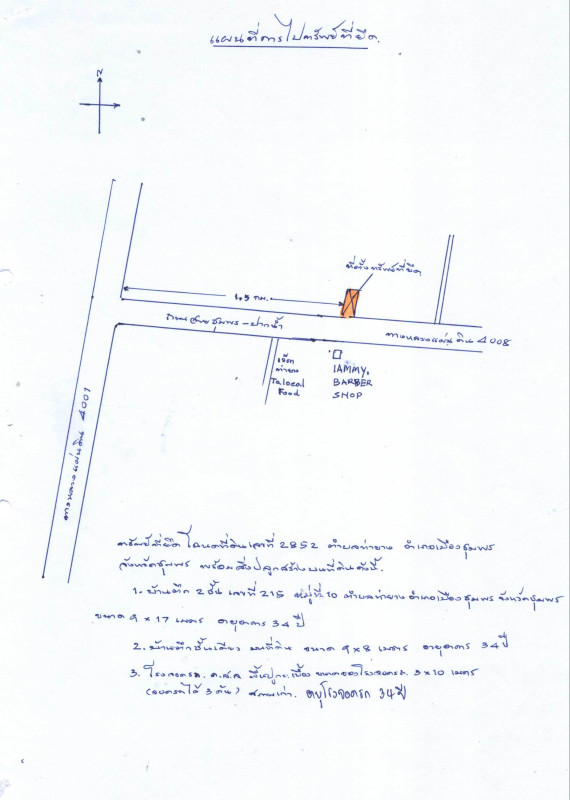 แผนที่การไปทรัพย์ที่ยึด
N
ที่ตั้งทรัพย์ที่ยึด
1.5 กม.
ถนนสายชุมพร-ปากน้ำ
ทางหลวงแผ่นดิน 4008
ทางหลวงแผ่นดิน 4001
ท่ายาง
Talocal
Food
IAMMY.
BARBER
SHOP
ทรัพย์ที่ยึด โฉนดที่ดินเลขที่ 2852 ตำบลท่ายาง อำเภอเมืองชุมพร
จังหวัดชุมพร พร้อมสิ่งปลูกสร้างบนที่ดินดังนี้.
1. บ้านตึก 2 ชั้น เลขที่ 215 หมู่ที่ 10 ตำบลท่ายาง อำเภอเมืองชุมพร จังหวัดชุมพร
ขนาด 9 x 17 เมตร อายุอาคาร 34 ปี
2. บ้านตึกชั้นเดียว บนที่ดิน ขนาด 9 x 8 เมตร อายุอาคาร 34 ปี
3. โรงจอดรถ ค.ส.ล. พื้นปูกระเบื้อง ขนาดของโรงจอดรถ 3 x 10 เมตร
(จอดรถได้ 3 คัน) สภาพเก่า. อายุโรงจอดรถ 34 ปี